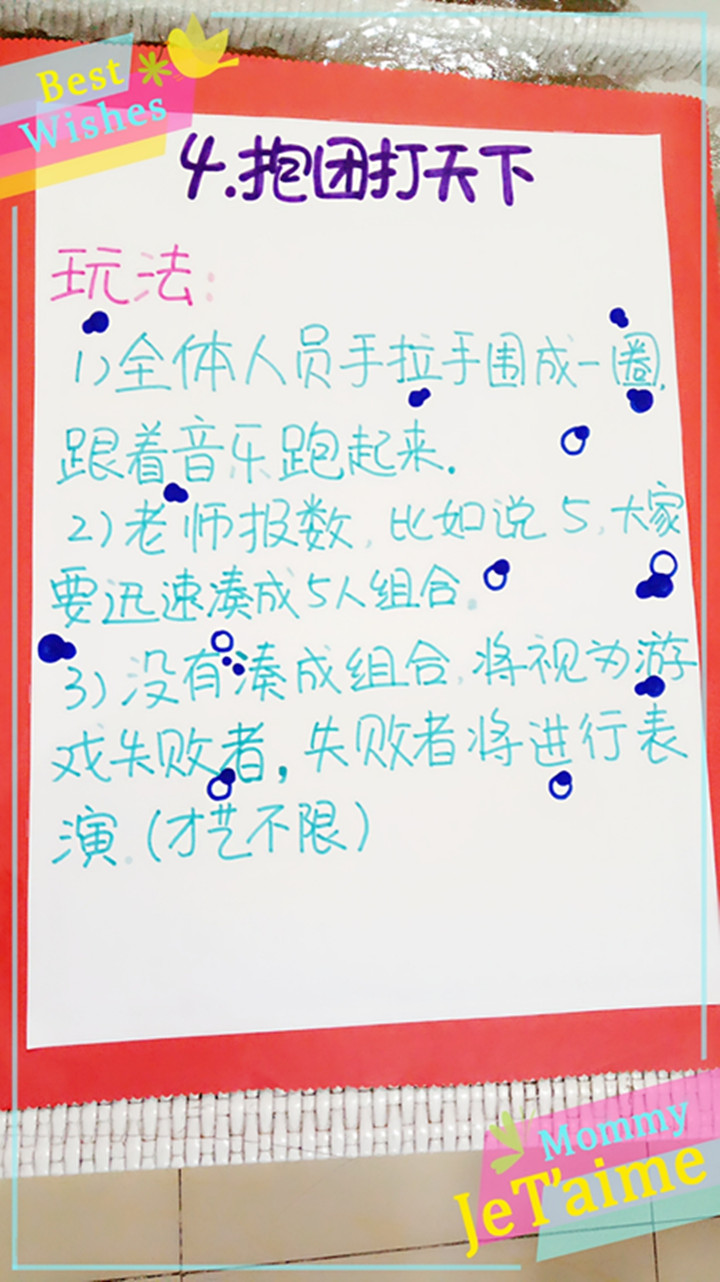 Best
Wishes
4.抱团打天下
玩法:
1)全体人员手拉手围成一圈,
跟着音乐跑起来.
2)老师报数,比如说5,大家
要迅速凑成5人组合.
3)没有凑成组合,将视为游
戏失败者,失败者将进行表
演.(才艺不限)
Mommy
JeT'aime